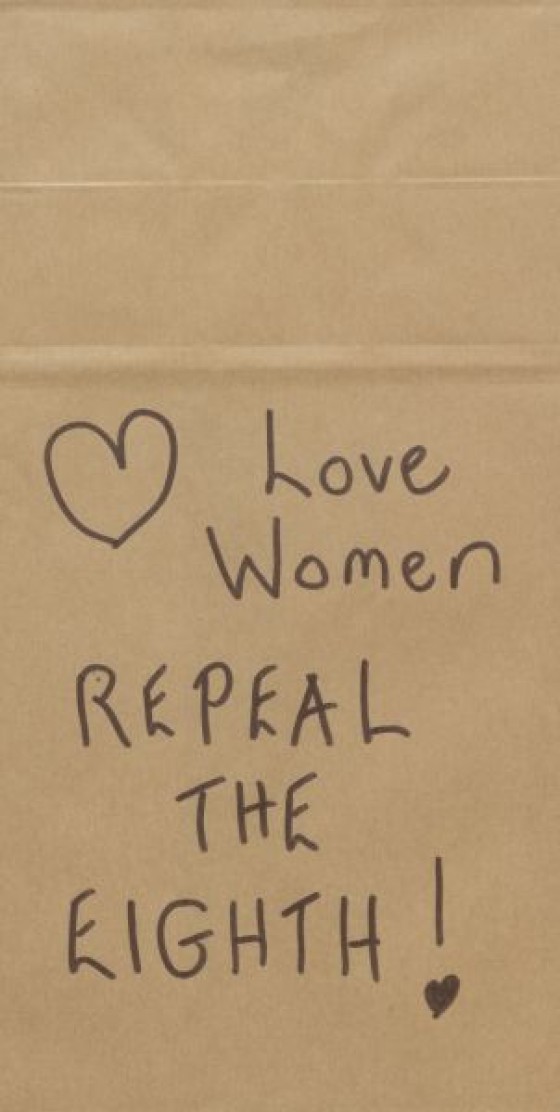 Love
Women
REPEAL
THE
EIGHTH!